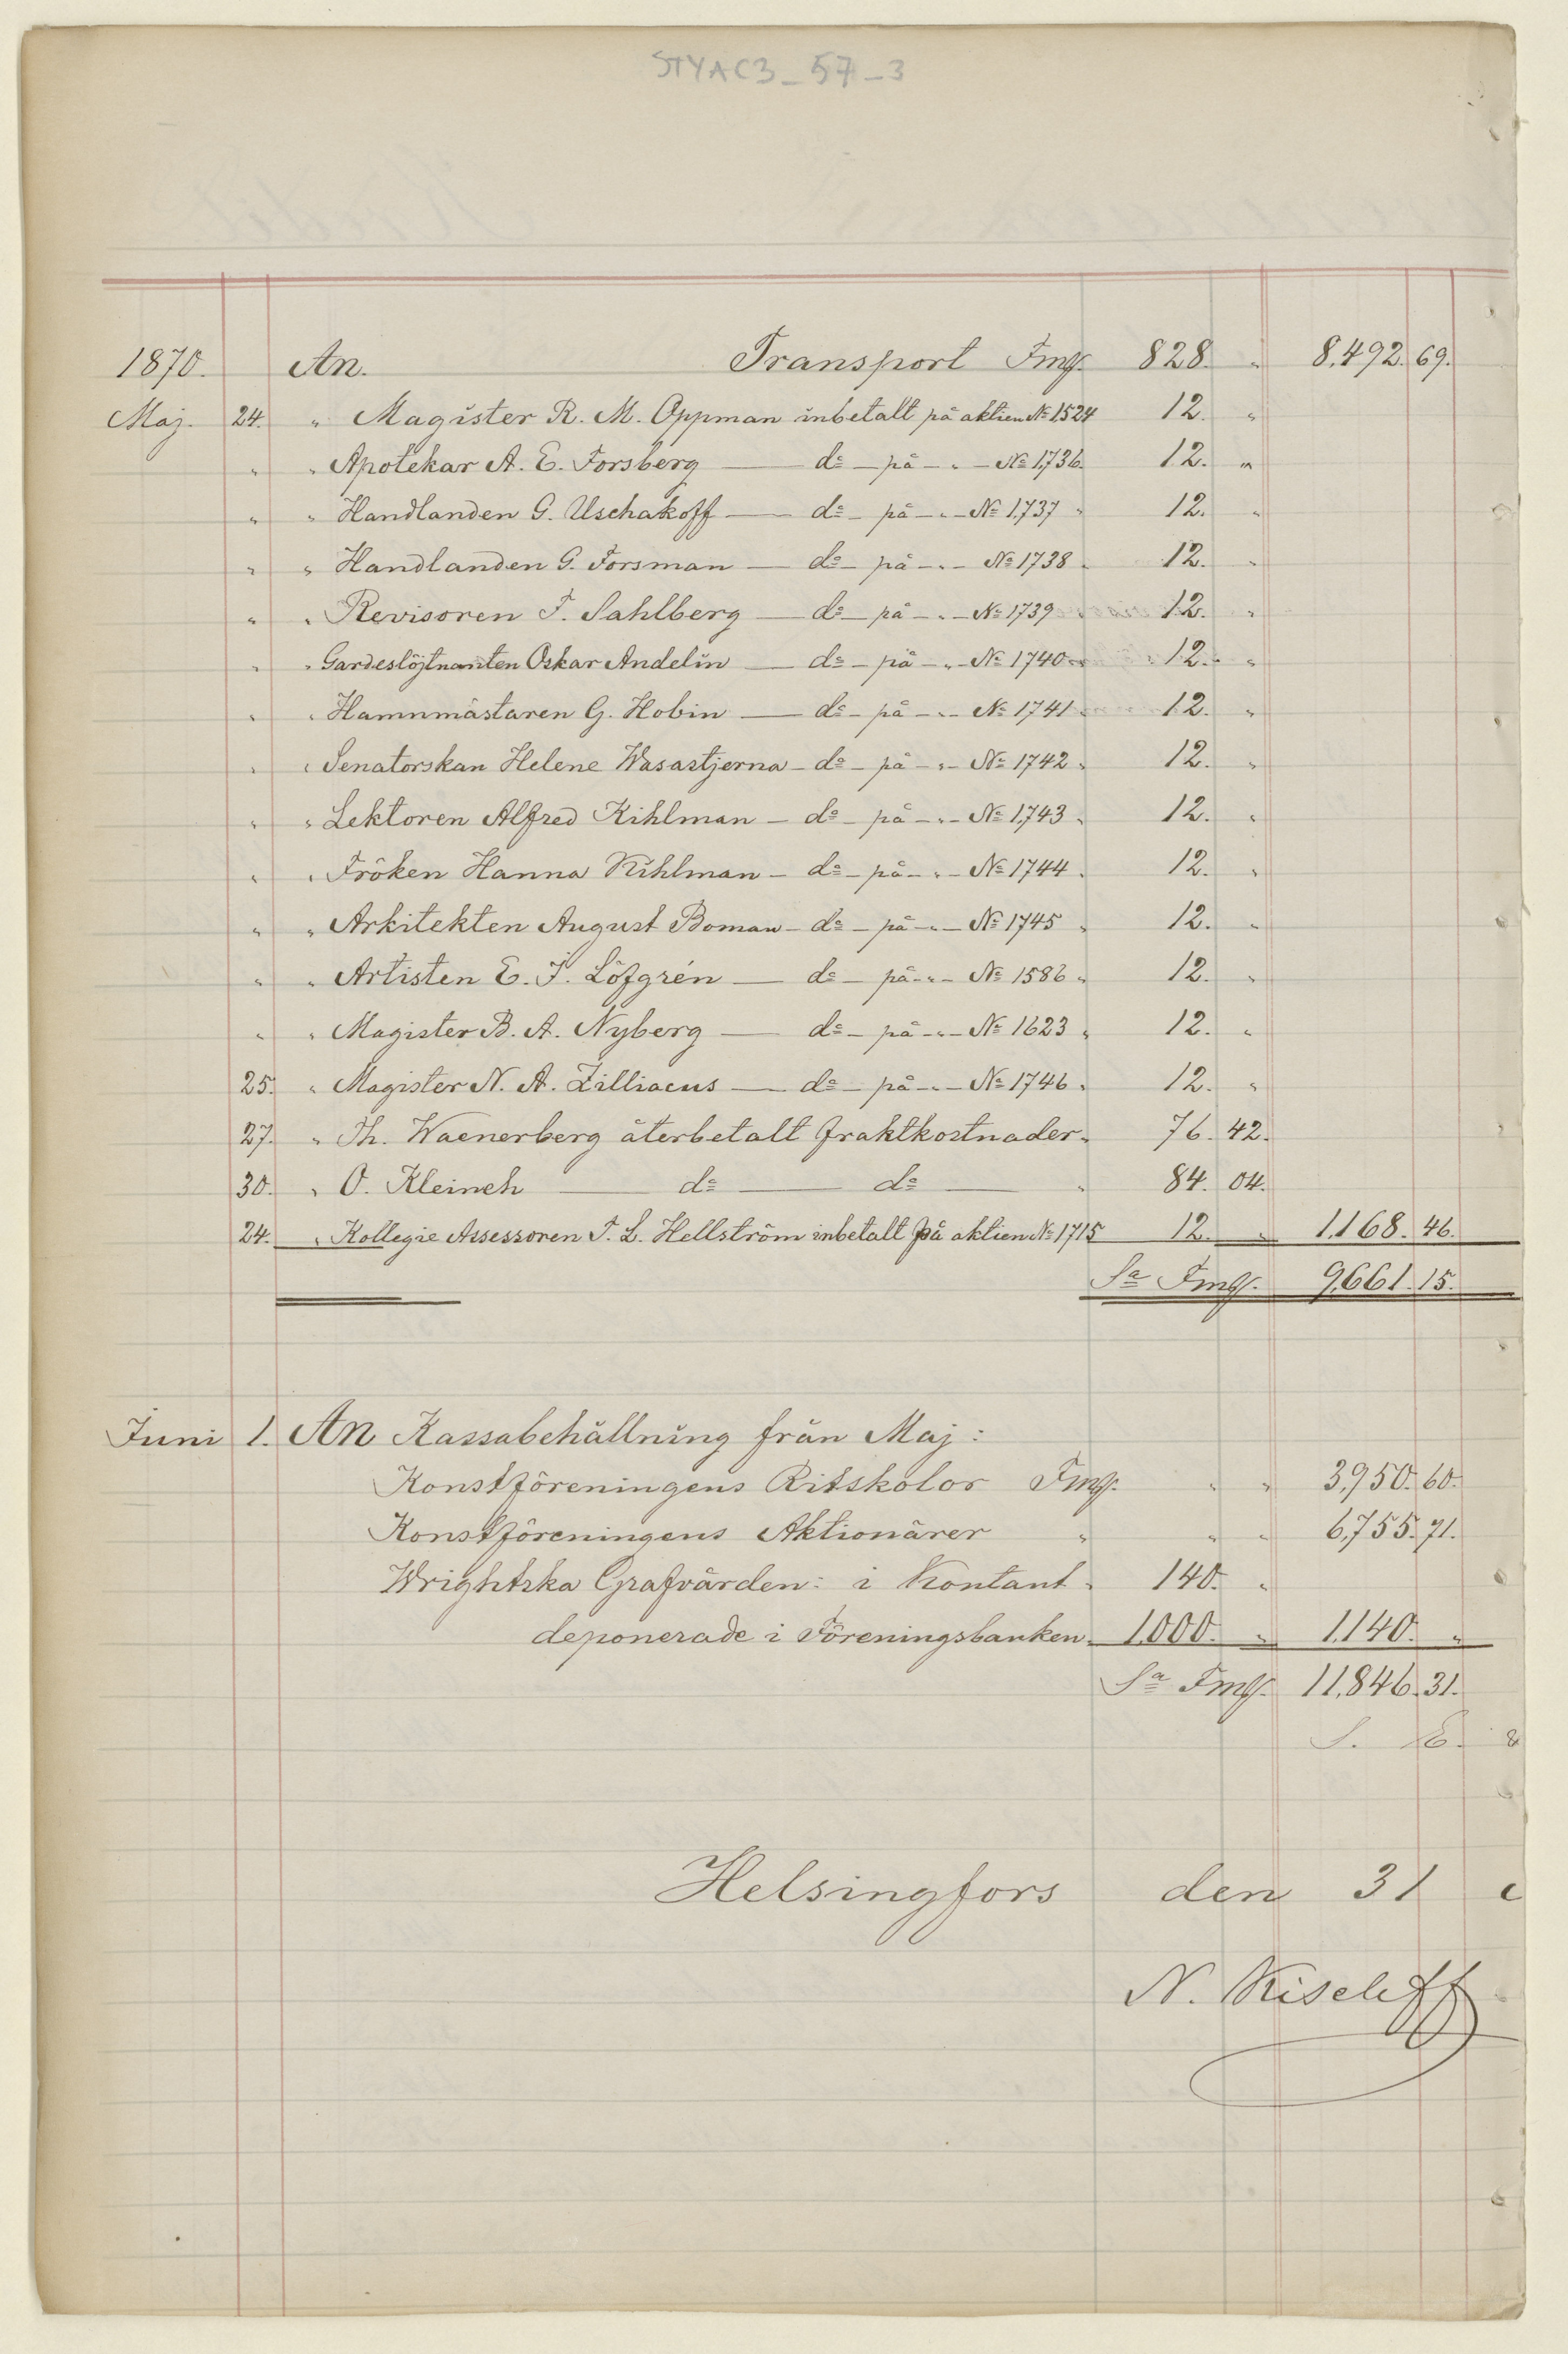 STYAC3_57_3
1870. An. Transport Fmg. 828. " 8,492. 69.
Maj. 24. " Magister R. M. Oppman inbetalt på aktien No 1524 12. "
" " Apotekar A. E. Forsberg — do — på — " — No 1,736. 12. "
" " Handlanden G. Uschakoff — do — på — " — No 1,737 " 12. "
" " Handlanden G. Forsman — do — på — " — No 1738 " 12. "
" " Revisoren F. Sahlberg — do — på — " — No 1739 " 12. "
" " Gardeslöjtnanten Oskar Andelin — do — på — " — No 1740 " 12. "
" " Hamnmästaren G. Hobin — do — på — " — No 1741 " 12. "
" " Senatorskan Helene Wasastjerna — do — på — " — No 1742 " 12. "
" " Lektoren Alfred Kihlman — do — på — " — No 1,743 " 12. "
" " Fröken Hanna Kihlman — do — på — " — No 1744 " 12. "
" " Arkitekten August Boman — do — på — " — No 1745 " 12. "
" " Artisten E. J. Löfgrén — do — på — " — No 1586 " 12. "
" " Magister B. A. Nyberg — do — på — " — No 1623 " 12. "
25. " Magister N. A. Zilliacus — do — på — " — No 1746 " 12. "
27. " Th. Waenerberg återbetalt fraktkostnader " 76. 42.
30. " O. Kleineh — do — do — " 84. 04.
24. " Kollegie Assessoren F. L. Hellström inbetalt på aktien No 1715 12. " 1,168. 46.
Sa Fmg. 9,661. 15.
Juni 1. An Kassabehållning från Maj:
Konstföreningens Ritskolor Fmg. " " 3,950. 60.
Konstföreningens Aktionärer " " " 6,755. 71.
Wrightska Grafvården: i Kontant " 140. "
deponerade i Föreningsbanken " 1,000. " 1,140. "
Sa Fmg. 11,846. 31.
S. E. &
Helsingfors den 31
N. Kiseleff